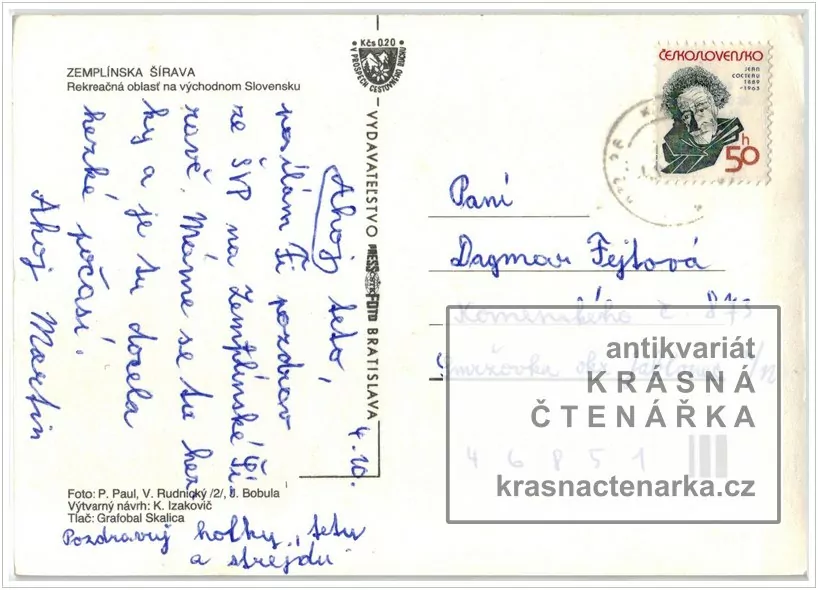 ZEMPLÍNSKA ŠÍRAVA
Rekreačná oblasť na východnom Slovensku
Kčs 0.20
V PROSPECH CESTOVNÉHO RUCHU
VYDAVATEĽSTVO PRESSFOTO BRATISLAVA
4. 10.
Ahoj teto,
posílám Ti pozdrav
ze ŠVP na Zemplínské Ši-
ravě. Máme se tu hez-
ky a je tu docela
hezké počasí.
Ahoj Martin
Foto: P. Paul, V. Rudnický /2/, J. Bobula
Výtvarný návrh: K. Izakovič
Tlač: Grafobal Skalica
Pozdravuj holky, tetu
a strejdu
ČESKOSLOVENSKO
JEAN
COCTEAU
1889
-1963
50 h
Paní
Dagmar Fejtová
Komenského č. 873
Smržovka okr. Jablonec n/N
46851
antikvariát
KRÁSNÁ
ČTENÁŘKA
krasnactenarka.cz